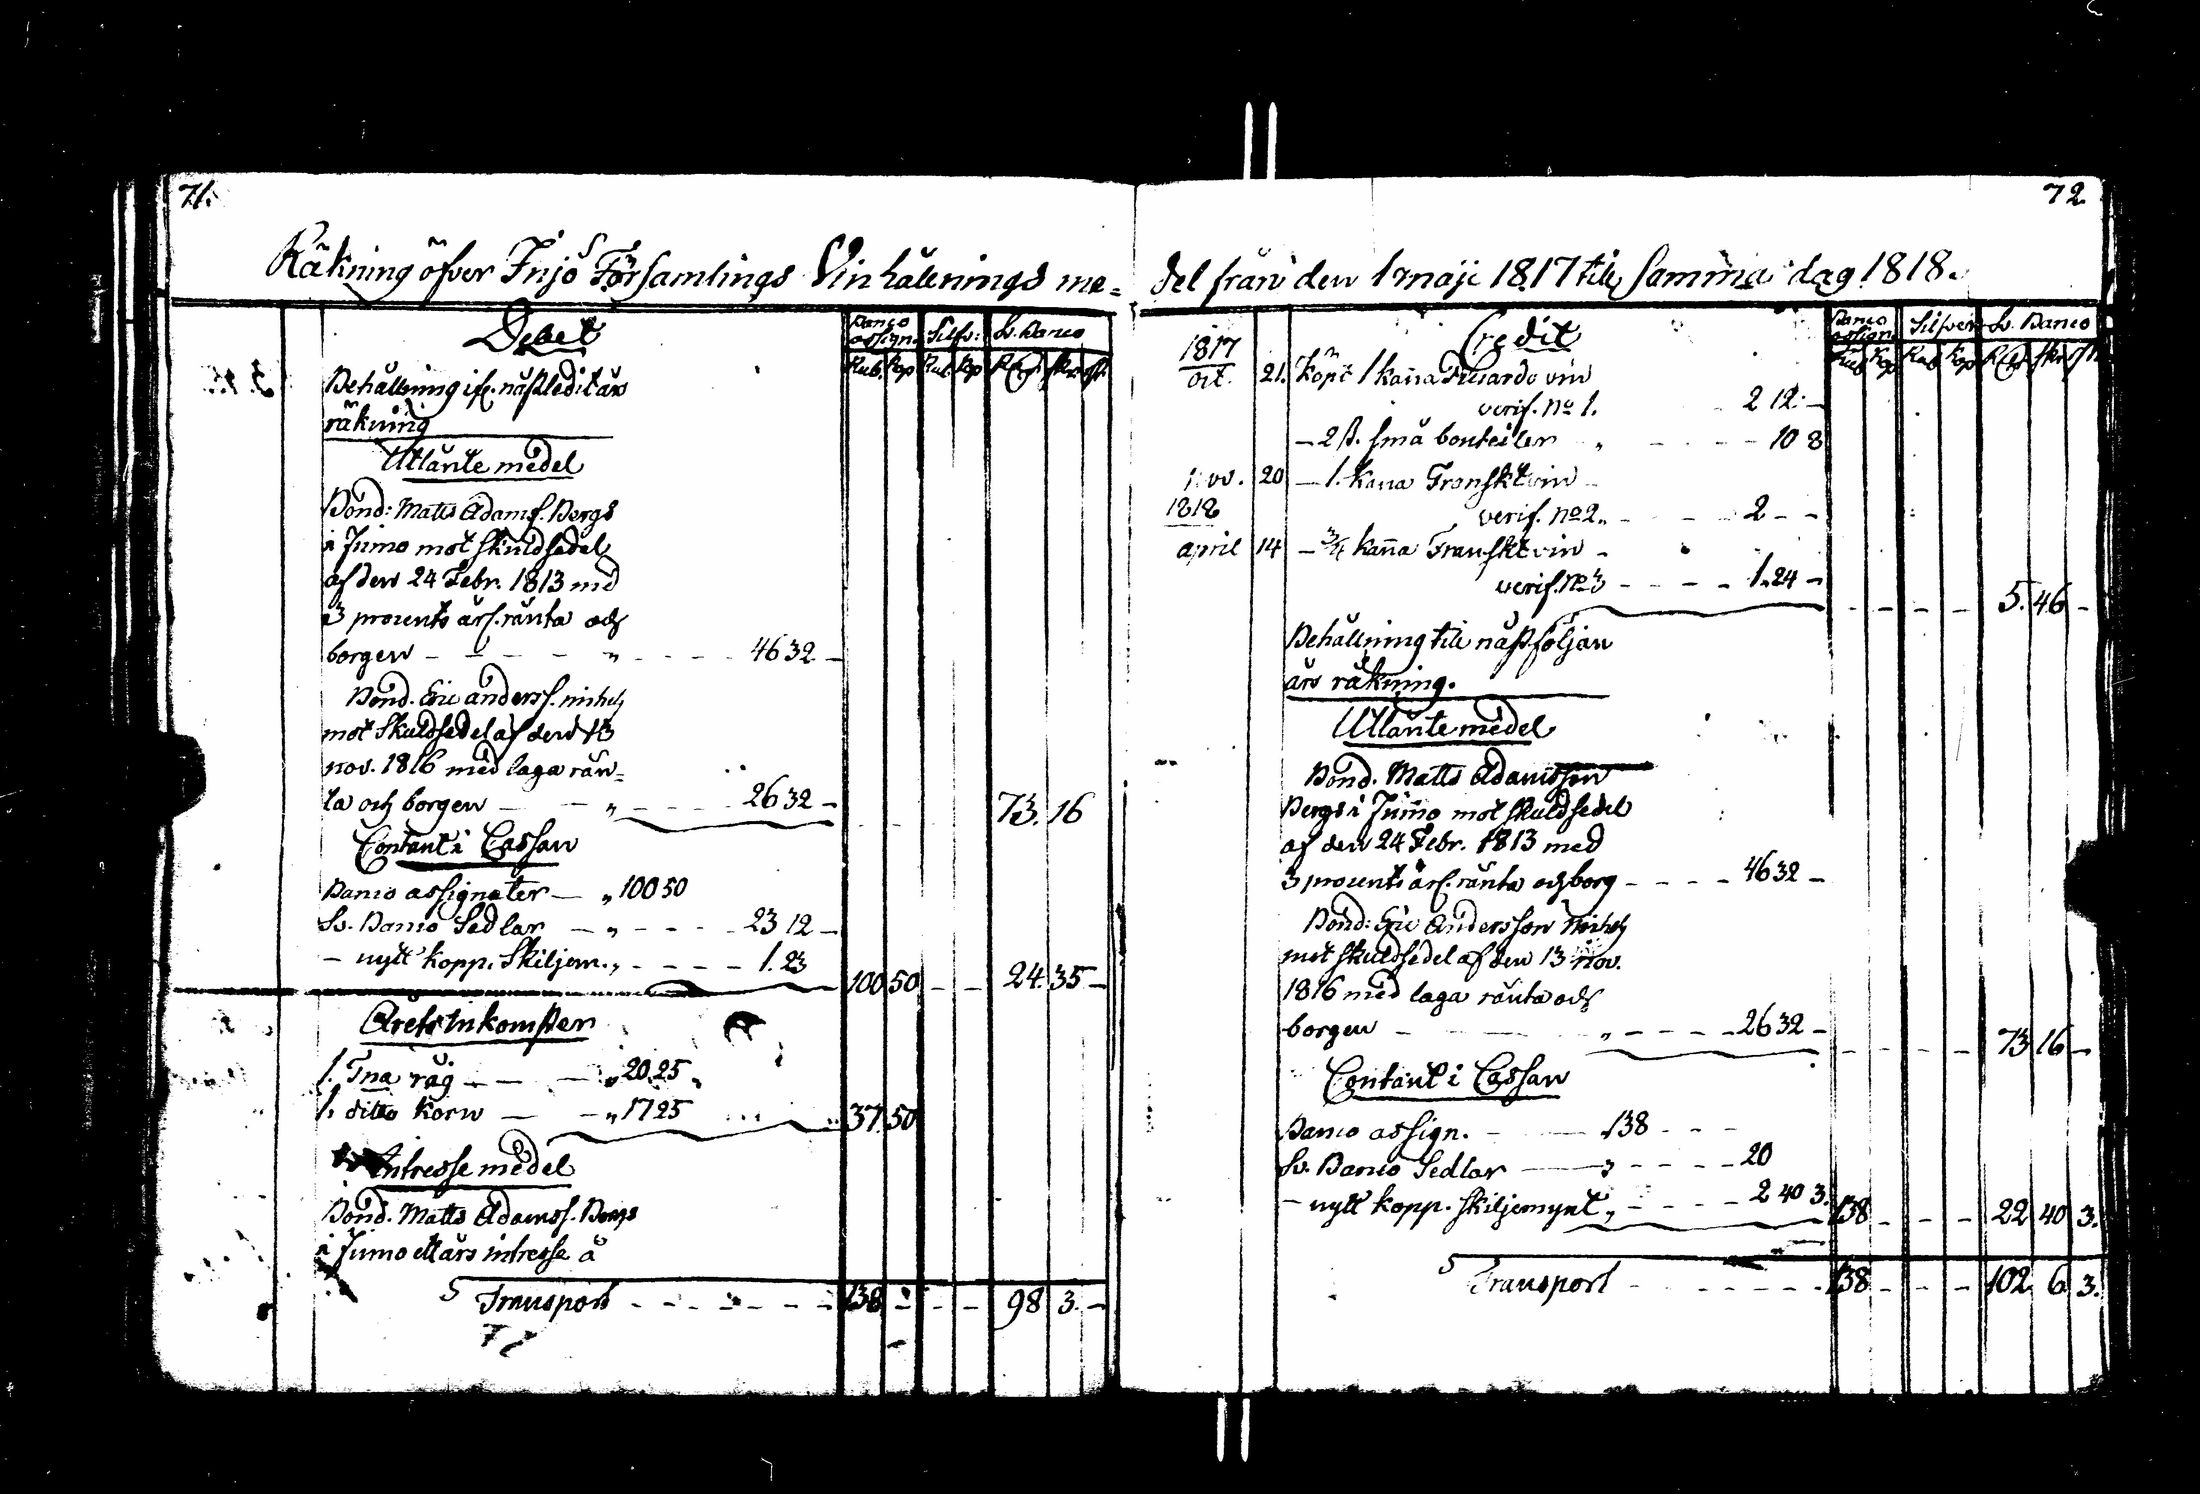 71.
Räkning öfver Injo Församlings Vinhållnings me=
Debet
Banco assign. Silfv: Sv. Banco
Rub. Kop Rub. Kop Rdr skr st
Behållning ifr. näßledit års
räkning
Utlånte medel
Bond: Matts Adamss. Bergs
i Jumo mot skuldsedel
af den 24 Febr. 1813 md
3 procents årl. ränta och
borgen - - - - " - - - - 46 32 -
Bond. Eric anderss.
mot skuldsedel af den 13
nov. 1816 med laga rän=
ta och borgen - - " - - - - 26 32 -
73. 16
Contant i Cassan
Banco assignater - " 100 50
Sv. Banco Sedlar - " - - - - 23 12 -
- nytt kopp. Skiljem. " - - - - 1. 23
100 50 - - 24. 35 -
Årets Inkomster
1. Tna råg - - - " 20. 25
1. ditto korn - - " 17 25
37. 50
Intresse medel
Bond. Matts Adamss. Bergs
i Jumo ett års intresse à
Transport - - - - - - - 138 - - - 98 3. -
72.
del från den 1 maji 1817 till samma dag 1818.
Credit
Banco assign. Silfver Sv. Banco
Rub Kop Rub Kop Rdr skr st
1817
oct. 21. Köpt 1 kanna vin
verif. No 1. - 2 12. -
- 2 st. små bouteiler " - - - - 10 8
nov. 20 - 1. Kanna Franskt vin -
1818
verif. No 2. - - - 2 - -
april 14 - 3/4 kanna Franskt vin -
verif. No 3 - - - - 1. 24 -
- - - - - 5. 46 -
Behållning till näßföljan
års räkning.
Utlånte medel
Bond. Matts Adamsson
Bergs i Jumo mot skuldsedel
af den 24 Febr. 1813 med
3 procents årl. ränta och borg - - - - 46 32 -
Bond: Eric Andersson
mot skuldsedel af den 13 nov.
1816 med laga ränta och
borgen - - " - - - - 26 32 -
- - - - - 73 16 -
Contant i Cassan
Banco assign. - - 138 - - -
Sv. Banco Sedlar - " - - - - 20
- nytt kopp. skiljemynt " - - - - 2 40 3.
138 - - - 22 40 3.
Transport - - - - - - 138 - - - 102. 6 3.